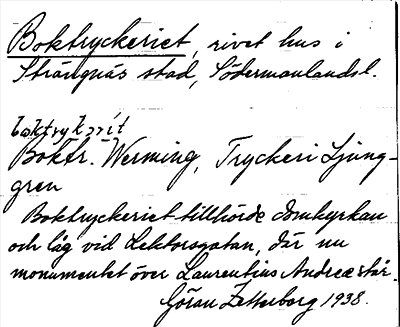 Boktryckeriet, rivet hus i
Strängnäs stad, Södermanlandsl.
Boktr. Werming, Tryckeri Ljung-
gren
Boktryckeriet tillhörde domkyrkan
och låg vid Lektorsgatan, där nu
monumentet över Laurentius Andreæ står.
Göran Zetterborg 1938.